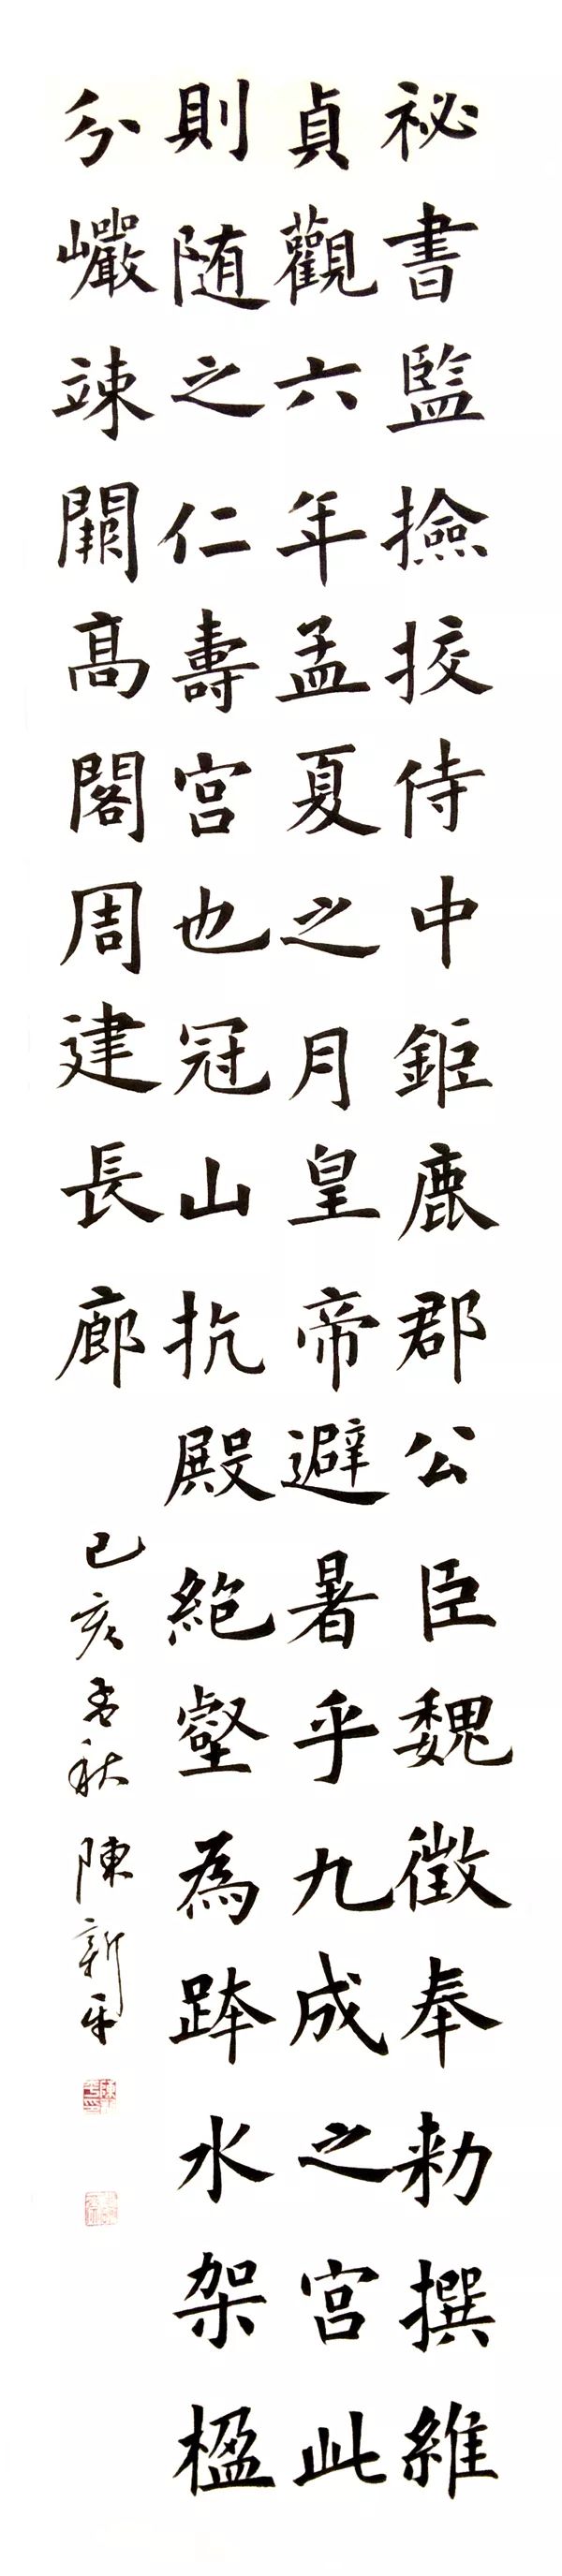 祕書監撿挍侍中鉅鹿郡公臣魏徵奉勑撰維
貞觀六年孟夏之月皇帝避暑乎九成之宮此
則随之仁壽宮也冠山抗殿絶壑為跨水架楹
分巖竦闕髙閣周建長廊
己亥孟秋 陳新平